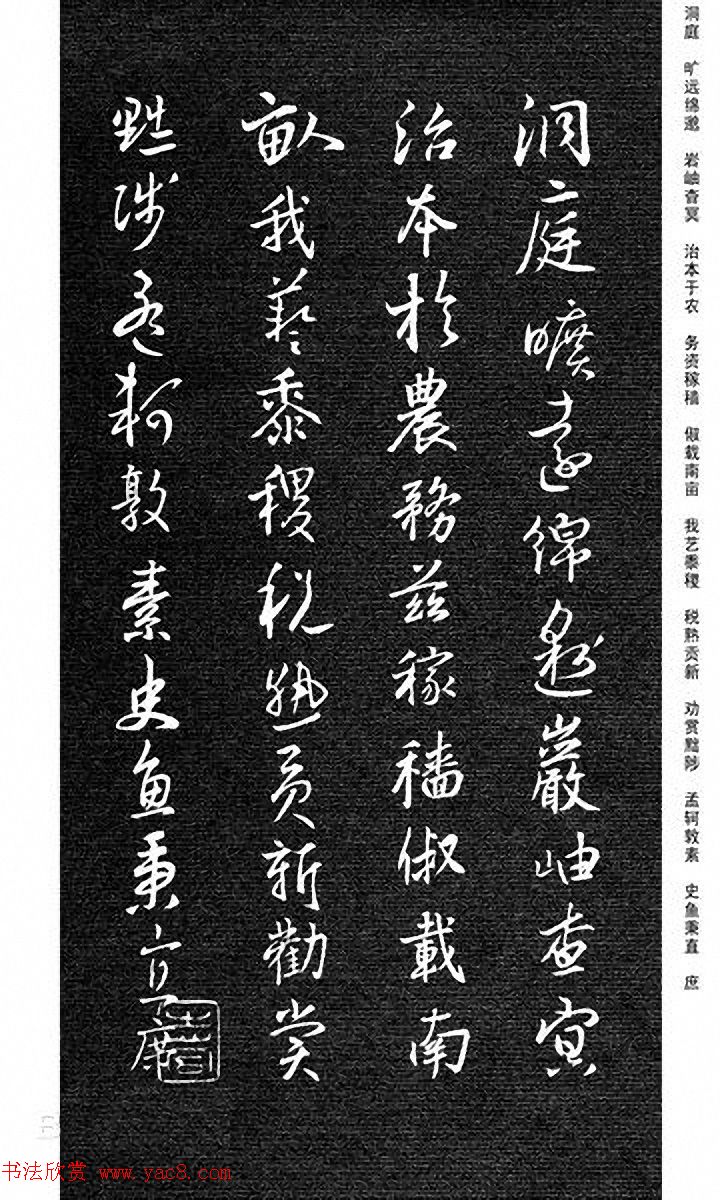 洞庭 旷远绵邈 岩岫杳冥 治本于农 务资稼穑 俶载南亩 我艺黍稷 税熟贡新 劝赏黜陟 孟轲敦素 史鱼秉直 庶
洞庭曠遠綿邈巖岫杳冥
治本於農務茲稼穡俶載南
畝我藝黍稷稅熟貢新勸賞
黜陟孟軻敦素史魚秉直庶
书法欣赏 www.yac8.com